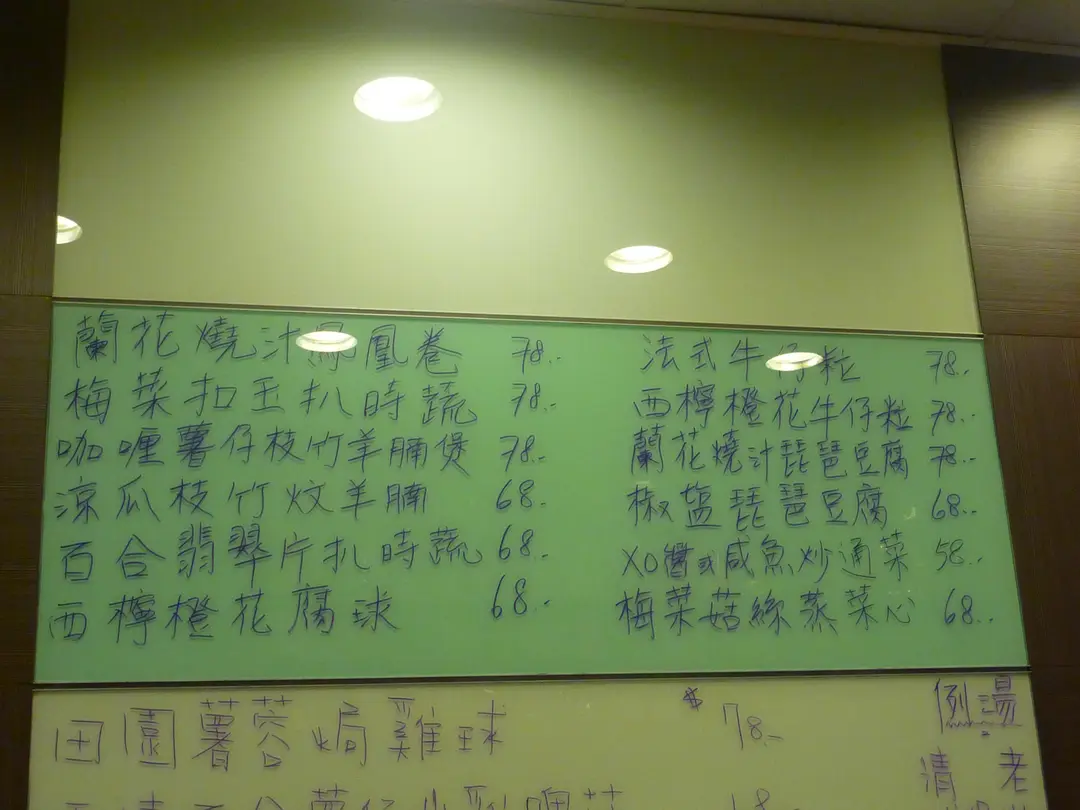 蘭花燒汁鳳凰卷 78.-
梅菜扣玉扒時蔬 78.-
咖喱薯仔枝竹羊腩煲 78.-
涼瓜枝竹炆羊腩 68.-
百合翡翠片扒時蔬 68.-
西檸橙花腐球 68.-
法式牛仔粒 78.-
西檸橙花牛仔粒 78.-
蘭花燒汁琵琶豆腐 78.-
椒盐琵琶豆腐 68.-
XO醬或咸魚炒通菜 58.-
梅菜菇絲蒸菜心 68.-
田園薯蓉焗雞球 $78.-
例湯
清 老